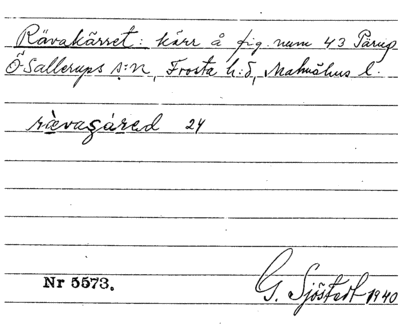 Rävakärret: kärr å fig. num 43 Pärup
Ö Sallerups s:n, Frosta h:d, Malmöhus l.
rävagáred 24
Nr 5573.
G. Sjöstedt 1940